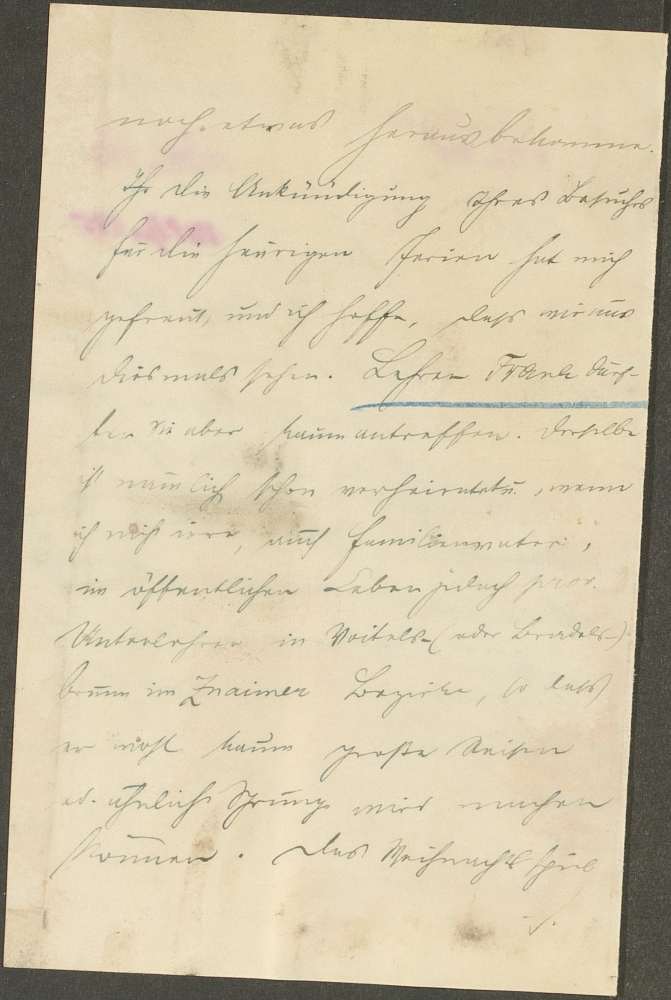 noch etwas herausbekomme.
Die Ankündigung Ihres Besuches
für die heurigen Ferien hat mich
gefreut, und ich hoffe, dass wir uns
diesmals sehen. Lehrer Frank dürf-
ten Sie aber kaum antreffen. Derselbe
ist nämlich schon verheiratet, wenn
ich nicht irre, auch Familienvater,
im öffentlichen Leben jedoch prov.
Unterlehrer in Voitels- (oder Bradels-)
brunn im Znaimer Bezirke, so dass
er wohl kaum große Reisen
od. ähnliche Sprünge wird machen
können. Das Weihnachtsspiel